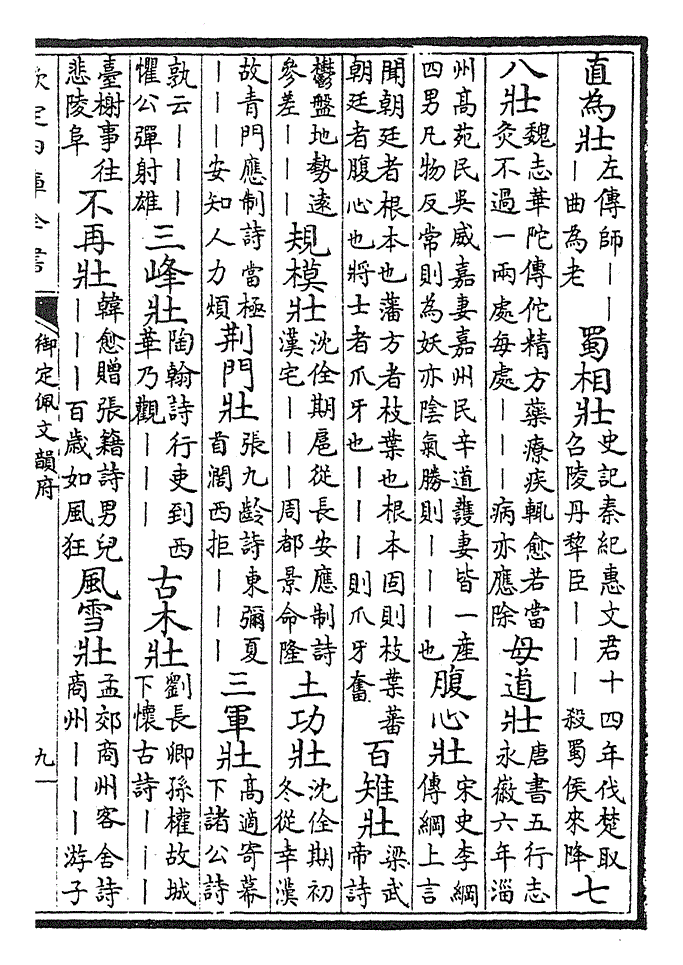 直為壯 左傳師丨丨丨曲為老 蜀相壯 史記秦紀惠文君十四年伐楚取召陵丹犂臣丨丨丨殺蜀侯來降 七
八壯 魏志華陀傳佗精方藥療疾輒愈若當灸不過一兩處每處丨丨丨病亦應除 母道壯 唐書五行志永徽六年淄
州高苑民吳威嘉妻嘉州民辛道䕶妻皆一產四男凡物反常則為妖亦陰氣勝則丨丨丨也 腹心壯 宋史李綱傳綱上言
聞朝廷者根本也藩方者枝葉也根本固則枝葉蕃朝廷者腹心也將士者爪牙也丨丨丨則爪牙奮 百雉壯 梁武帝詩
鬱盤地勢遠參差丨丨丨 規模壯 沈佺期扈從長安應制詩漢宅丨丨丨周都景命隆 土功壯 沈佺期初冬從幸漢
故青門應制詩當極丨丨丨安知人力煩 荆門壯 張九齡詩東彌夏首濶西拒丨丨丨 三軍壯 高適寄幕下諸公詩
孰云丨丨丨懼公彈射雄 三峰壯 陶翰詩行吏到西華乃觀丨丨丨 古木壯 劉長卿孫權故城下懷古詩丨丨丨
臺榭事往悲陵阜 不再壯 韓愈贈張籍詩男兒丨丨丨百歲如風狂 風雪壯 孟郊商州客舍詩商州丨丨丨游子
欽定四庫全書
御定佩文韻府
九